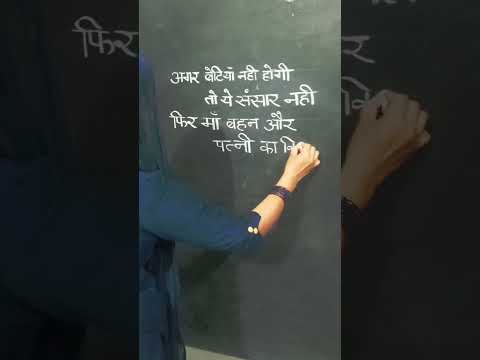 अगर बेटियाँ नही होगी
तो ये संसार नही
फिर माँ बहन और
पत्नी का